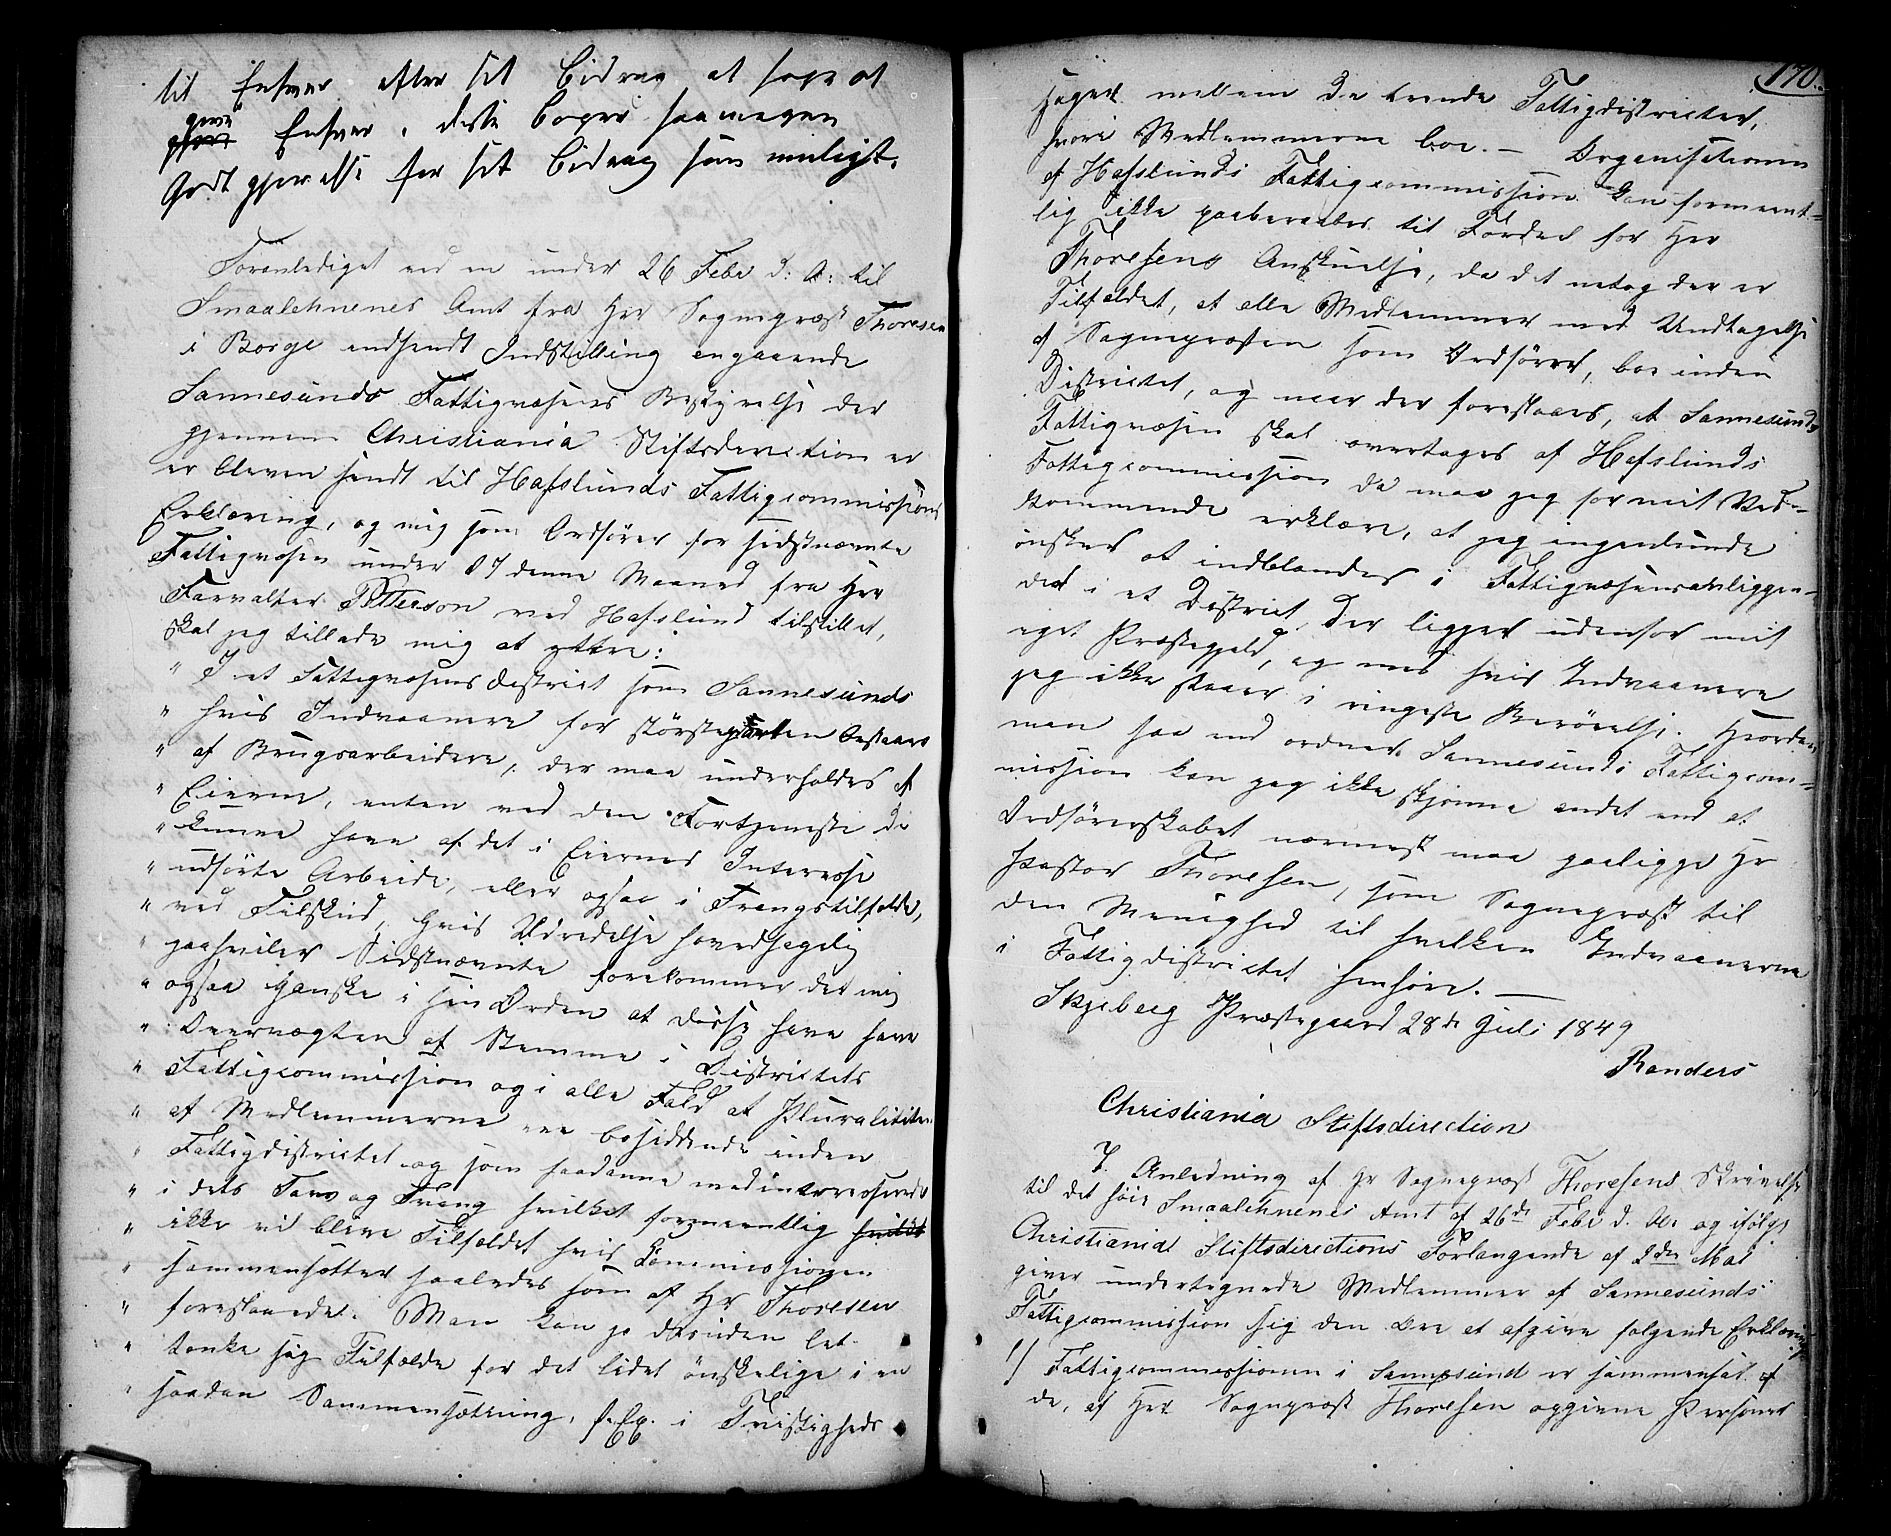 til Enhver efter sit Bidrag at søge at
give
Enhver i disse Bøger saameget
Godtgjørelse for sit Bidrag som muligt.
Foranlediget ved en under 26 Febr d: A: til
Smaalehnenes Amt fra Herr Sognepræst Thoresen
i Borge indsendt Indstilling angaaende
Sannesunds Fattigvæsens Bestyrelse der
gjennem Christiania Stiftsdirection er
er bleven sendt til Hafslunds Fattigcommissions
Erklæring, og mig som Ordfører for sidstnævnte
Fattigvæsen under 17 denne Maaned fra Herr
Forvalter Petterson ved Hafslund tilstillet,
skal jeg tillade mig at yttre:
" I et Fattigvæsensdistrict som Sannesunds
" hvis Indvaanere for størsteparten bestaaer
" af Brugsarbeidere, der maa underholdes af
" Eierne, enten ved den Fortjeneste de
" kunne have af det i Eiernes Interesse
" udførte Arbeide, eller ogsaa i Trangstilfælde,
" ved Tilskud, hvis Udredelse hovedsagelig
" paahviler Sidstnævnte forekommer det mig
" ogsaa ganske i sin Orden at disse have have
" Overvægten af Stemme i Districtets
" Fattigcommission og i alle Fald at Pluraliteten
" af Medlemmerne ere besiddende inden
" Fattigdistrictet og som saadanne medinteresserede
" i dets Tarv og Trang hvilket formeentlig
" ikke vil blive Tilfældet hvis Commissionen
" sammensættes saaledes som af Hr Thoresen
" foreslaaedt. Man kan jo desuden let
" tænke sig Tilfælde for det lidet ønskelige i en
" saadan Sammensætning, f. Ex. i Tvistigheds
170.
Sager mellem de trende Fattigdistricter,
hvori Medlemmerne boe. — Organisationen
af Hafslunds Fattigcommission kan formeent-
lig ikke paaberaabes til Fordeel for Herr
Thoresens Anskuelse, da det netop der er
Tilfældet, at alle Medlemmer med Undtagelse
af Sognepræsten som Ordfører, boe inden
Districtet, og naar der foreslaaes, at Sannesunds
Fattigvæsen skal overtages af Hafslunds
Fattigcommission da maa jeg for mit Ved-
kommende erklære, at jeg ingenlunde
ønsker at indblandes i Fattigvæsensanliggen-
der i et District, der ligger udenfor mit
eget Præstegjeld, og med hvis Indvaanere
jeg ikke staaer i ringeste Berørelse. Hvordan
man saa end ordner Sannesunds Fattigcom-
mission kan jeg ikke skjønne andet end at
Ordførerskabet nærmest maa paaligge Hr
Pastor Thoresen, som Sognepræst til
den Menighed til hvilken Indvaanerne
i Fattigdistrictet henhøre. —
Skjeberg Præstegaard 28de Juli 1849
Randers
Christiania Stiftsdirection
I Anledning af Hr Sognepræst Thoresens Skrivelse
til det høie Smaalehnenes Amt af 26de Febr d. A. og ifølge
Christiania Stiftsdirections Forlangende af 2den Mai
giver undertegnede Medlemmer af Sannesunds
Fattigcommission sig den Ære at afgive følgende Erklæring
1/ Fattigcommissionen i Sannesund er sammensat af
de, af Herr Sognepræst Thoresen opgivne Personer